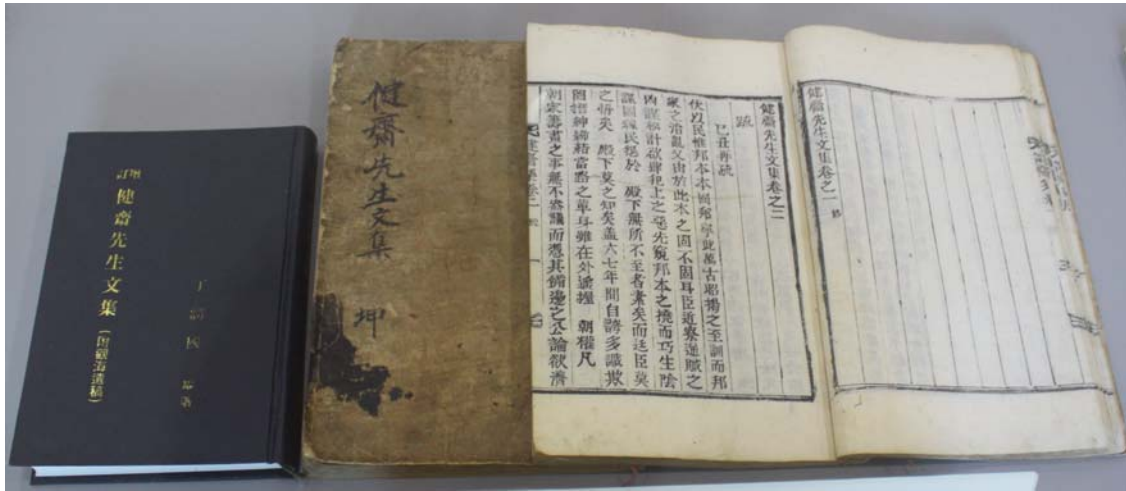 增訂 健齋先生文集 (附觀海遺稿)
編著
健齋先生文集 坤
健齋先生文集卷之一 終
健齋先生文集卷之二
疏
己丑再疏
伏以民惟邦本本固邦寧此萬古昭揭之至訓而邦
家之治亂又由於此本之固不固耳臣近察逆賊之
內謀秘計欲肆犯上之惡先窺邦本之撓而巧生陰
謀圖 民怨於 殿下無所不至者素矣而廷臣莫
之悟矣 殿下莫之知矣盖六七年間自謂多識欺
罔搢紳締結當路之輩身雖在外遙握 朝權凡
朝家籌畫之事無不容議而憑其備邊之公論欲濟